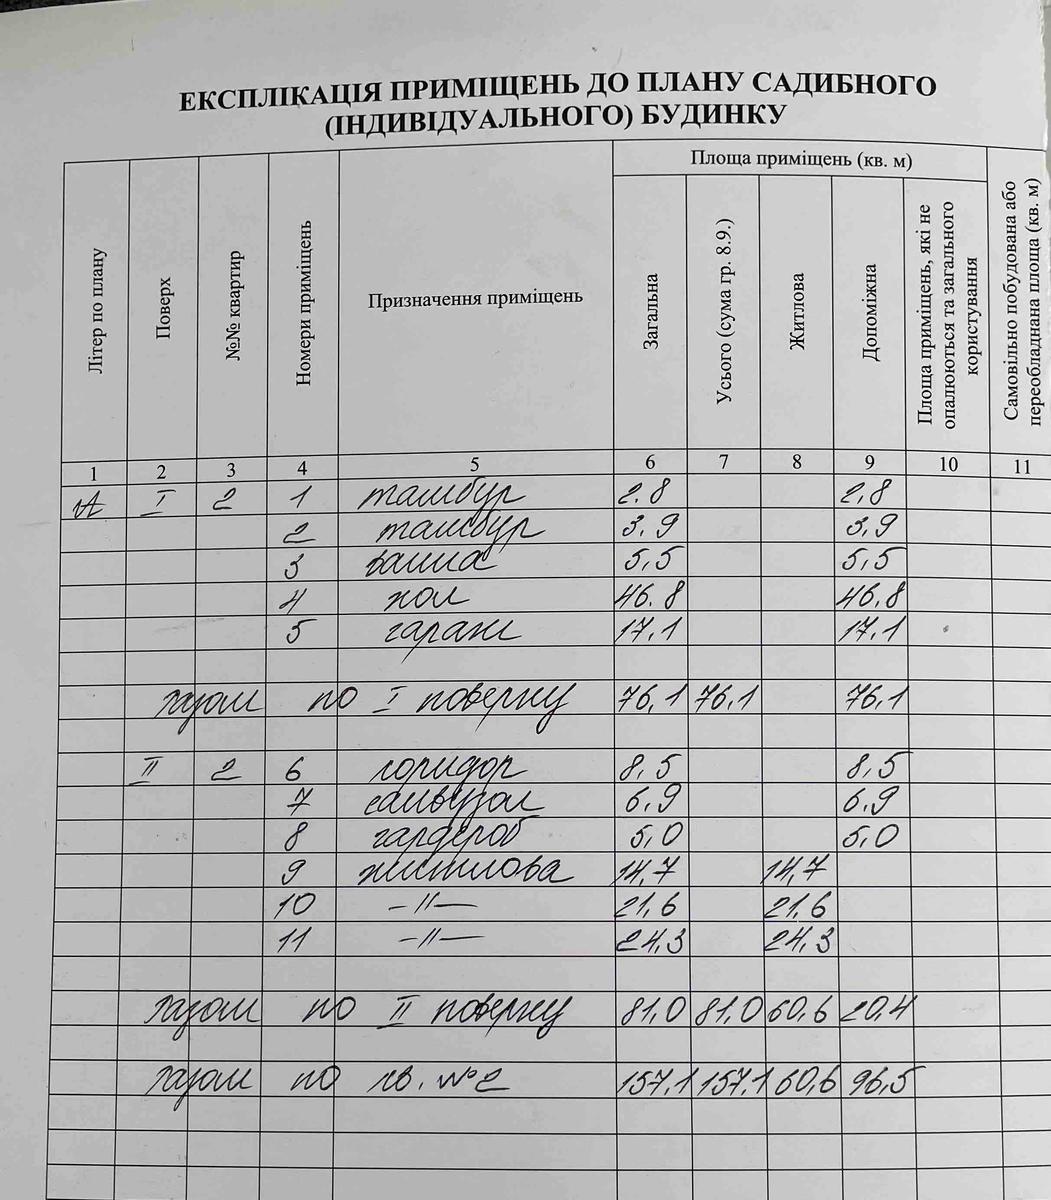 ЕКСПЛІКАЦІЯ ПРИМІЩЕНЬ ДО ПЛАНУ САДИБНОГО
(ІНДИВІДУАЛЬНОГО) БУДИНКУ
Літер по плану
Поверх
№№ квартир
Номери приміщень
Призначення приміщень
Площа приміщень (кв. м)
Загальна
Усього (сума гр. 8.9.)
Житлова
Допоміжна
Площа приміщень, які не
опалюються та загального
користування
Самовільно побудована або
переобладнана площа (кв. м)
1 2 3 4 5 6 7 8 9 10 11
А І 2 1 тамбур 2.8 2,8
2 тамбур 3.9 3,9
3 ванна 5,5 5,5
4 хол 46.8 46,8
5 гараж 17.1 17.1
разом по І поверху 76,1 76.1 76.1
ІІ 2 6 коридор 8,5 8,5
7 санвузол 6.9 6.9
8 гардероб 5,0 5.0
9 житлова 14,7 14,7
10 –//– 21,6 21,6
11 –//– 24,3 24,3
разом по ІІ поверху 81,0 81,0 60,6 20,4
разом по кв. №2 157,1 157,1 60,6 96,5